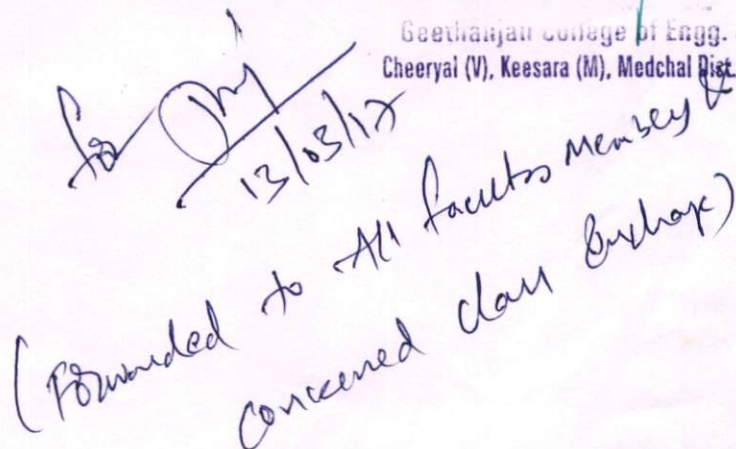 Geethanjali College of Engg.
Cheeryal (V), Keesara (M), Medchal Dist.
for
13/03/17
(Forwarded to All faculty Members &
concerned class